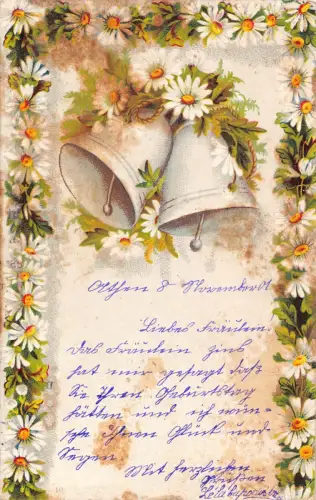 Athen 8 November 01
Liebes Fräulein.
Das Fräulein zins
hat mir gesagt daß
Sie Ihren Geburtstag
hätten und ich wün-
sche Ihnen Glück und
Segen.
Mit herzlichen